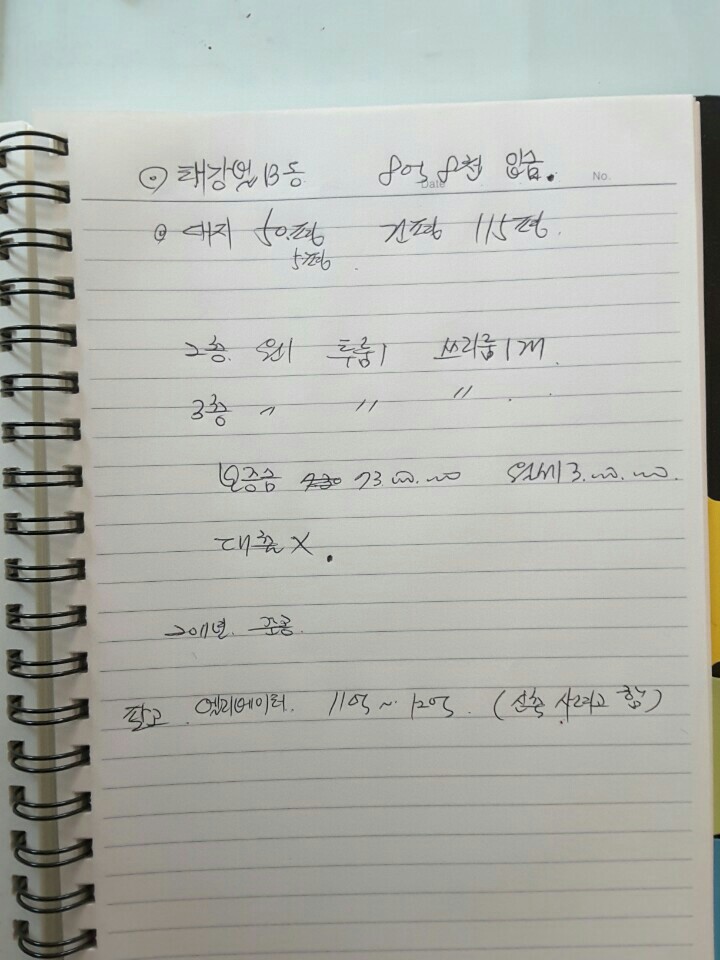 ⊙ 태강빌 B동 8억 8천 입금.
Date No.
◎ 대지 50평 건평 115평.
5평
2층. 원1 투룸1 쓰리룸1개
3층 〃 〃 〃
보증금 73.00.00 월세 3.00.00.
대출 X.
2011년. 준공.
팔고. 엘리베이터. 11억~12억. (신축 사려고 함)